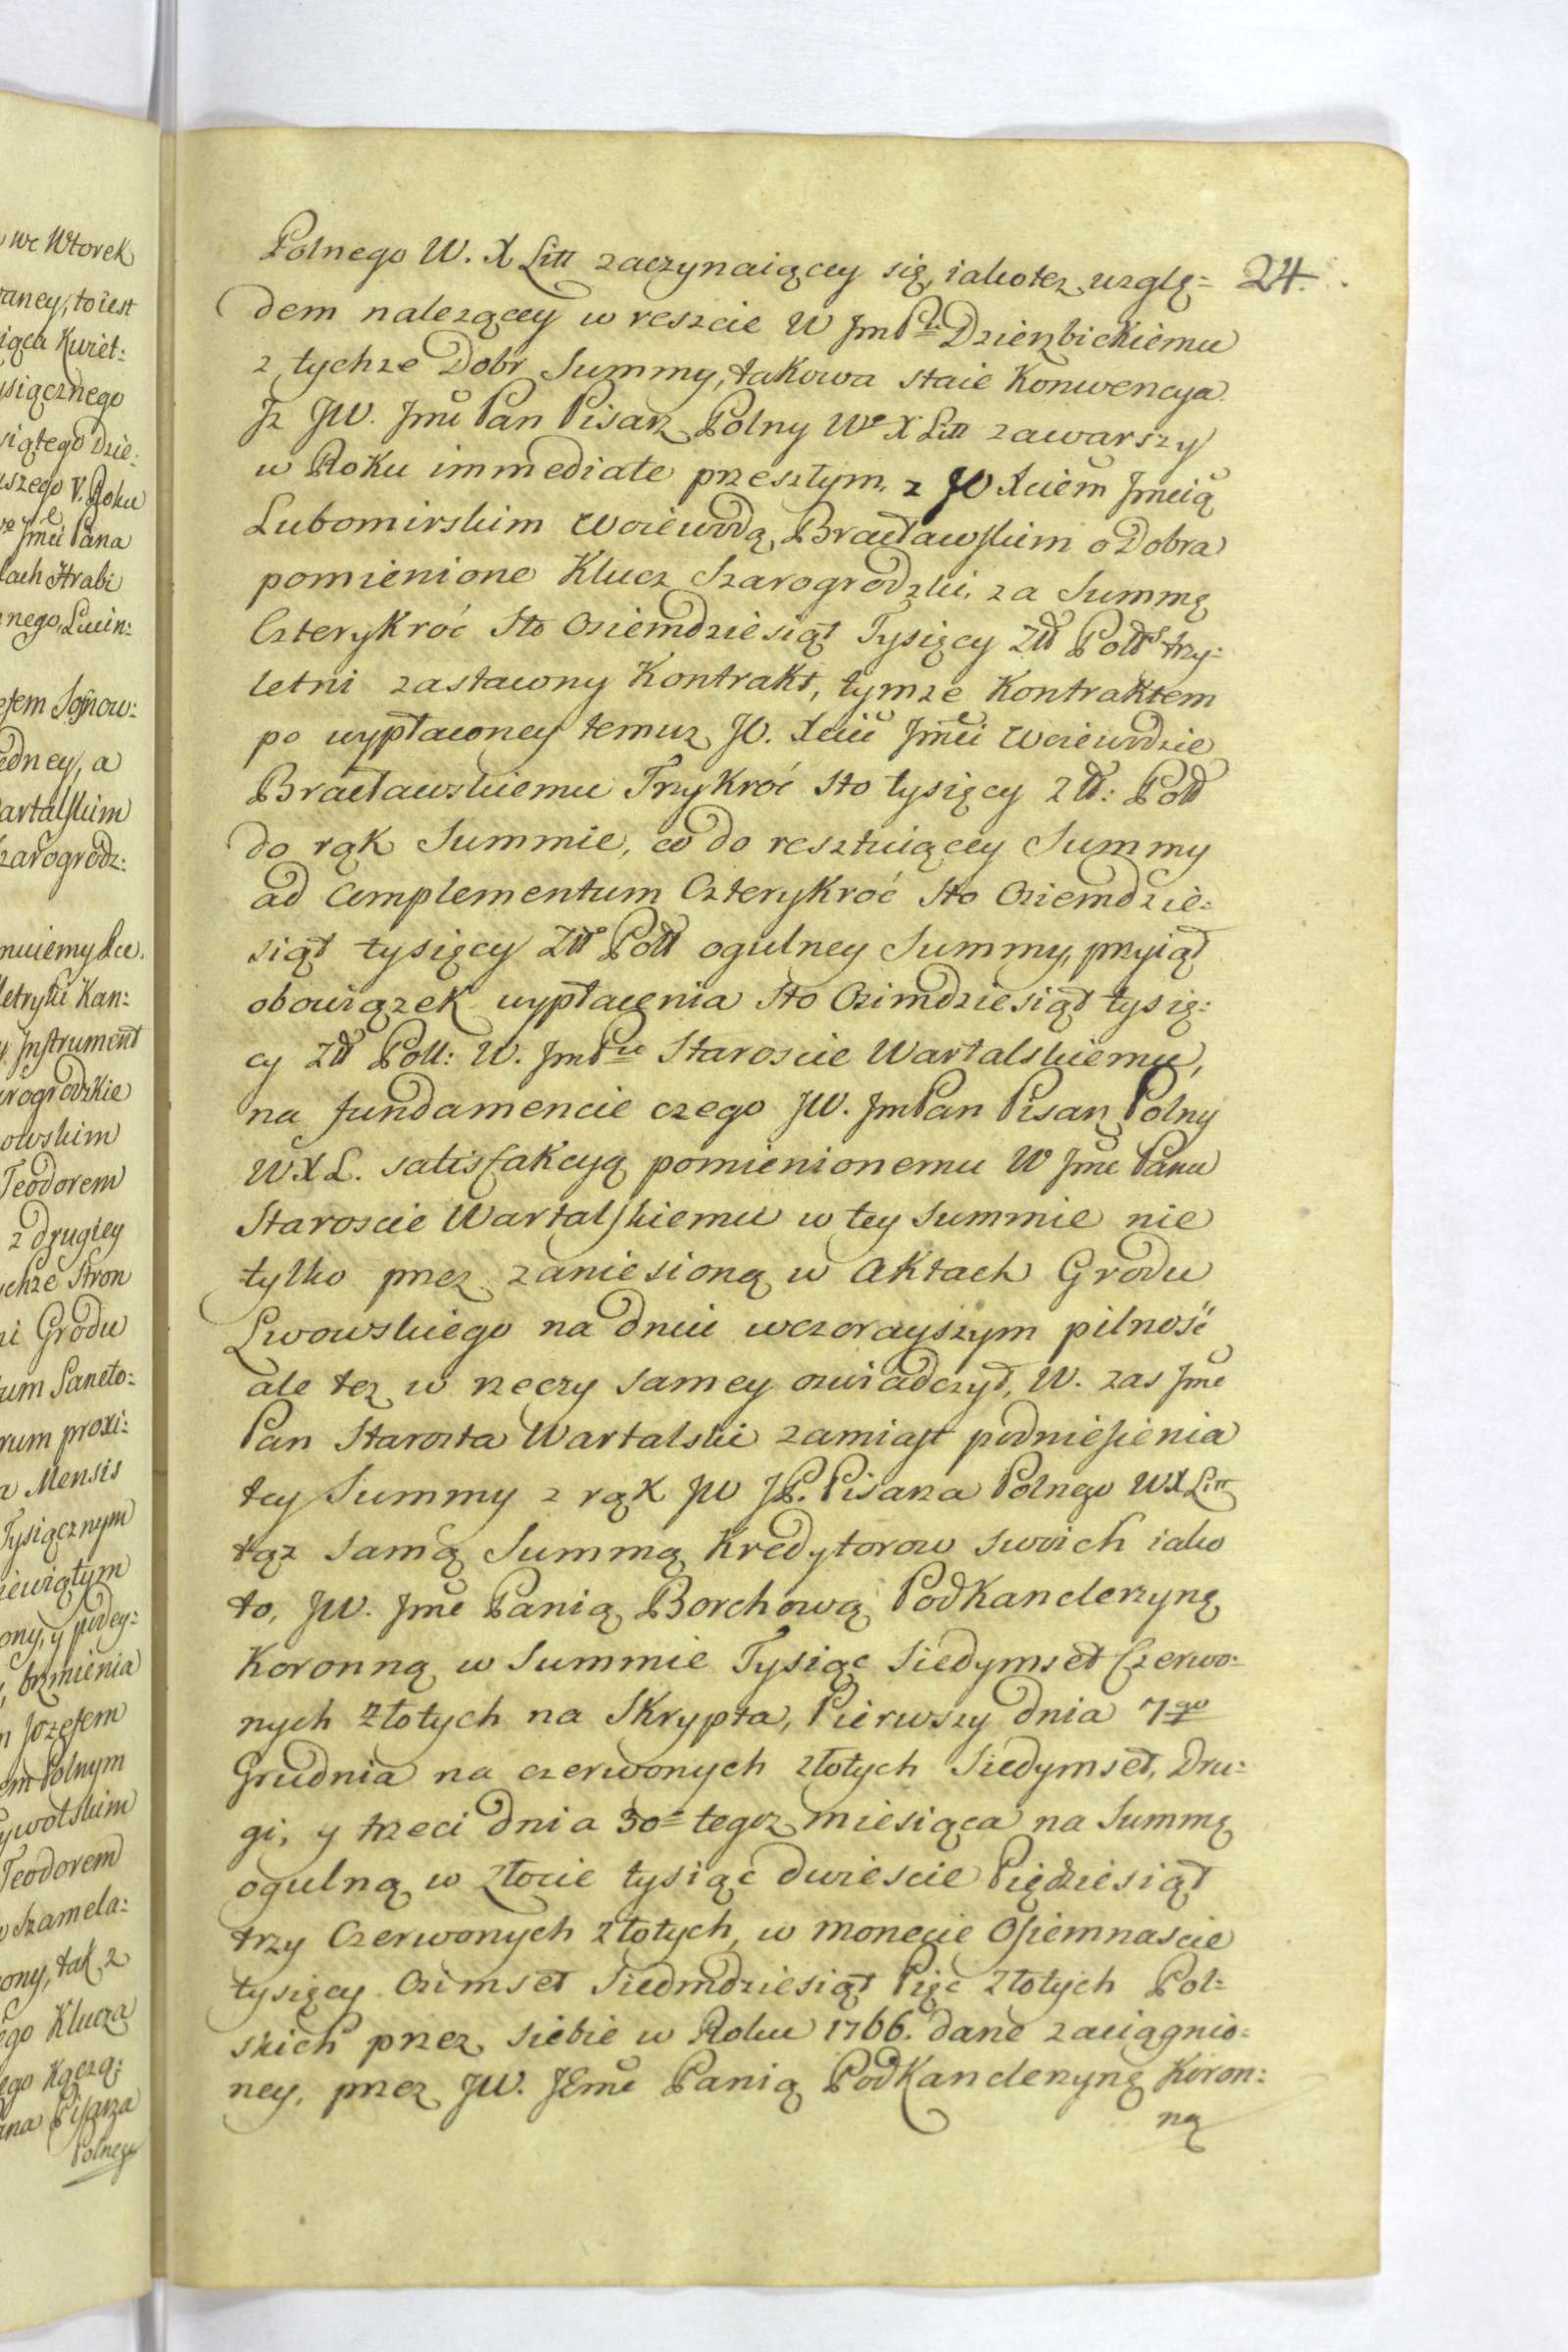 we Wtorek
raney, to iest
iąca Kwiet:
ysiącznego
siątego Dzie:
uszego V. Roku
Jmci Pana
lach Hrabi
nnego, Lucin:
efem Sosnow:
edney, a
Wartalskim
zarogrodz:
muiemy
Metryki Kan:
y Instrument
arogrodzkie
owskim
Teodorem
z drugiey
ychże Stron
ni Grodu
tum Sancto:
rum proxi:
a Mensis
Tysiącznym
iewiątym
ony, y podey:
, brzmienia
m Jozefem
em Polnym
ywolskim
Teodorem
w Szamela:
ony, tak z
ego Klucza
ego Kącżą:
ana Pisarza
Polnego
24.
Polnego W. X Litt zaczynaiącey się, iakotez wzglę=
dem nalezącey w reszcie W JmPu. Dzierzbickiemu
z tychze Dobr Summy, takowa staie Konwencya
Jz JW. Jmć Pan Pisarz Polny Wo X Litt zawarszy
w Roku immediate przeszłym z JO Xciem Jmcią
Lubomirskim Woiewodą Bracławskim o Dobra
pomienione Klucz Szarogrodzki, za Summę
Czterykroć Sto Osiemdziesiąt Tysięcy Złł Polls trzy=
letni zastawny Kontrakt, tymze Kontraktem
po wypłaconey temuz JO. Xciu Jmci Woiewodzie
Bracławskiemu Trzykroć Sto tysięcy Złł: Poll
do rąk Summie, co do resztuiącey Summy
ad Complementum Czterykroć Sto Osiemdzie=
siąt tysięcy Złł Poll ogulney Summy, przyiął
obowiązek wypłacenia Sto Osimdziesiąt tysię:
cy Złł Poll: W. JmPu Staroscie Wartalskiemu,
na fundamencie czego JW. JmPan Pisarz Polny
W X L. satisfakcyą pomienionemu W Jmc Panu
Staroscie Wartalskiemu w tey Summie nie
tylko przez zaniesioną w Aktach Grodu
Lwowskiego na dniu wczorayszym pilność
ale tez w rzeczy samey oswiadczył, W. zas Jmć
Pan Starosta Wartalski zamiast podniesienia
tey Summy z rąk JW JP. Pisarza Polnego W X Litt
tąz samą Summą Kredytorow swoich iako
to, JW. Jmć Panią Borchową Podkanclerzynę
Koronną w Summie Tysiąc Siedymset Czerwo=
nych Złotych na Skrypta, Pierwszy dnia 7go
Grudnia na czerwonych złotych Siedymset, Dru=
gi, y trzeci dnia 30= tegoz miesiąca na Summę
ogulną w Złocie tysiąc dwiescie Pięćdziesiąt
trzy Czerwonych złotych, w monecie Osiemnascie
tysięcy Osimset Siedmdziesiąt Pięć Złotych Pol=
skich przez siebie w Roku 1766. dane zaciągnio=
ney, przez JW. JEmć Panią Podkanclerzynę Koron:
ną